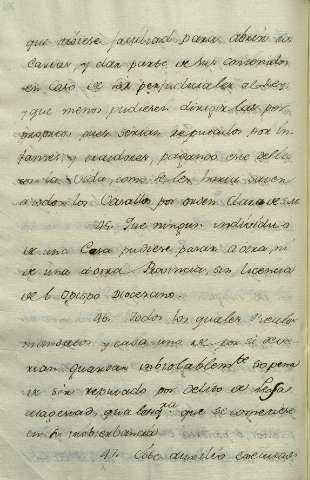 que tubiese facultad para abrir sus
Cartas, y dar parte de sus contenidos
en caso de ser perjudiciales al Rey,
y que menos pudiesen dirigirlas por
pues serian reputados por In
fames, y traidores, pagando este delito
con la Vida, como se les hacia saver
a todos los
45. Que ningun individuo
de una Casa pudiese pasar a otra, ni
de una a otra Provincia, sin licencia
de el Obispo Diocesano.
46. Todos los quales
mandados y cada uno de por si deve
rian guardar imbiolablemte. so pena
de ser reputado por delito de lesa
magestad, qualesqra que se cometiese
en su inobserbancia
47.